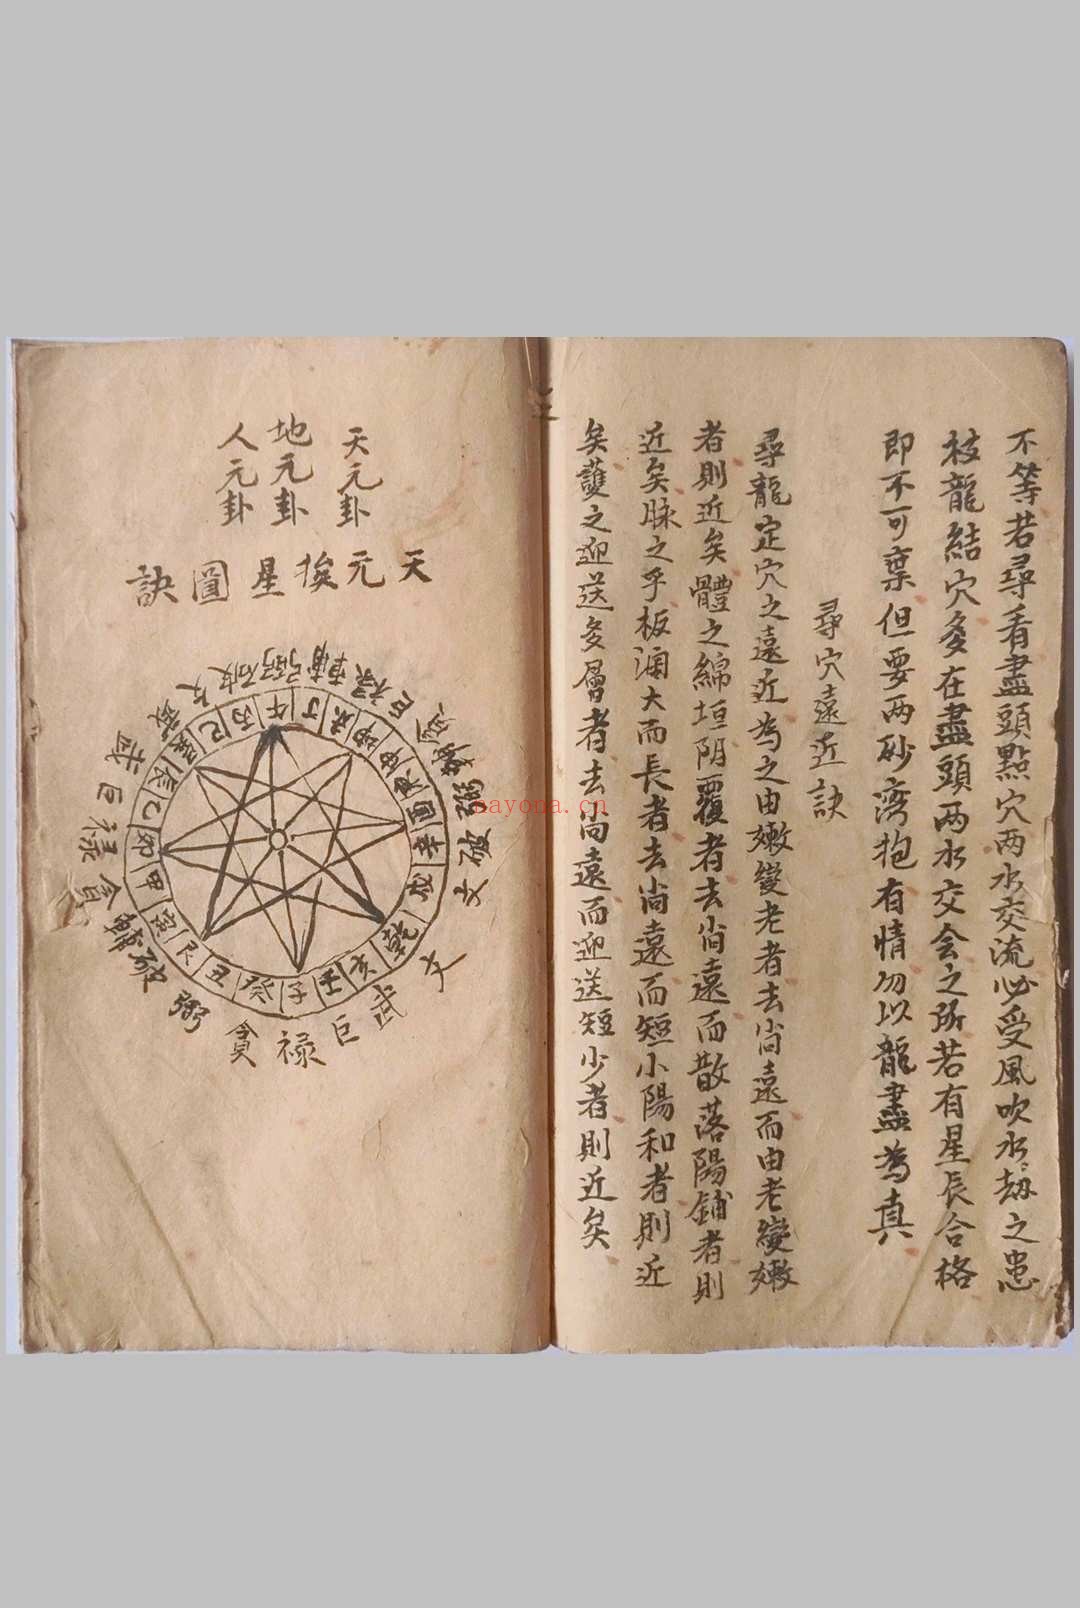 不等若尋看盡頭點穴两水交流必受風吹水劫之患
枝龍結穴多在盡頭两水交会之所若有星辰合格
即不可棄但要两砂湾抱有情勿以龍盡為真
尋穴遠近訣
尋龍定穴之遠近為之由嫩變老者去尚遠而由老變嫩
者則近矣體之綿垣阴覆者去尚遠而散落陽鋪者則
近矣脉之乎板濶大而長者去尚遠而短小陽和者則近
矣護之迎送多層者去尚遠而迎送短少者則近矣
天元卦
地元卦
人元卦
天元挨星圖訣
午丁未坤申庚酉辛戌乾亥壬子癸丑艮寅甲卯乙辰巽巳丙
弼輔祿巨
弼破文
文武巨祿貪弼破輔
貪祿巨武
文破
nayona.cn